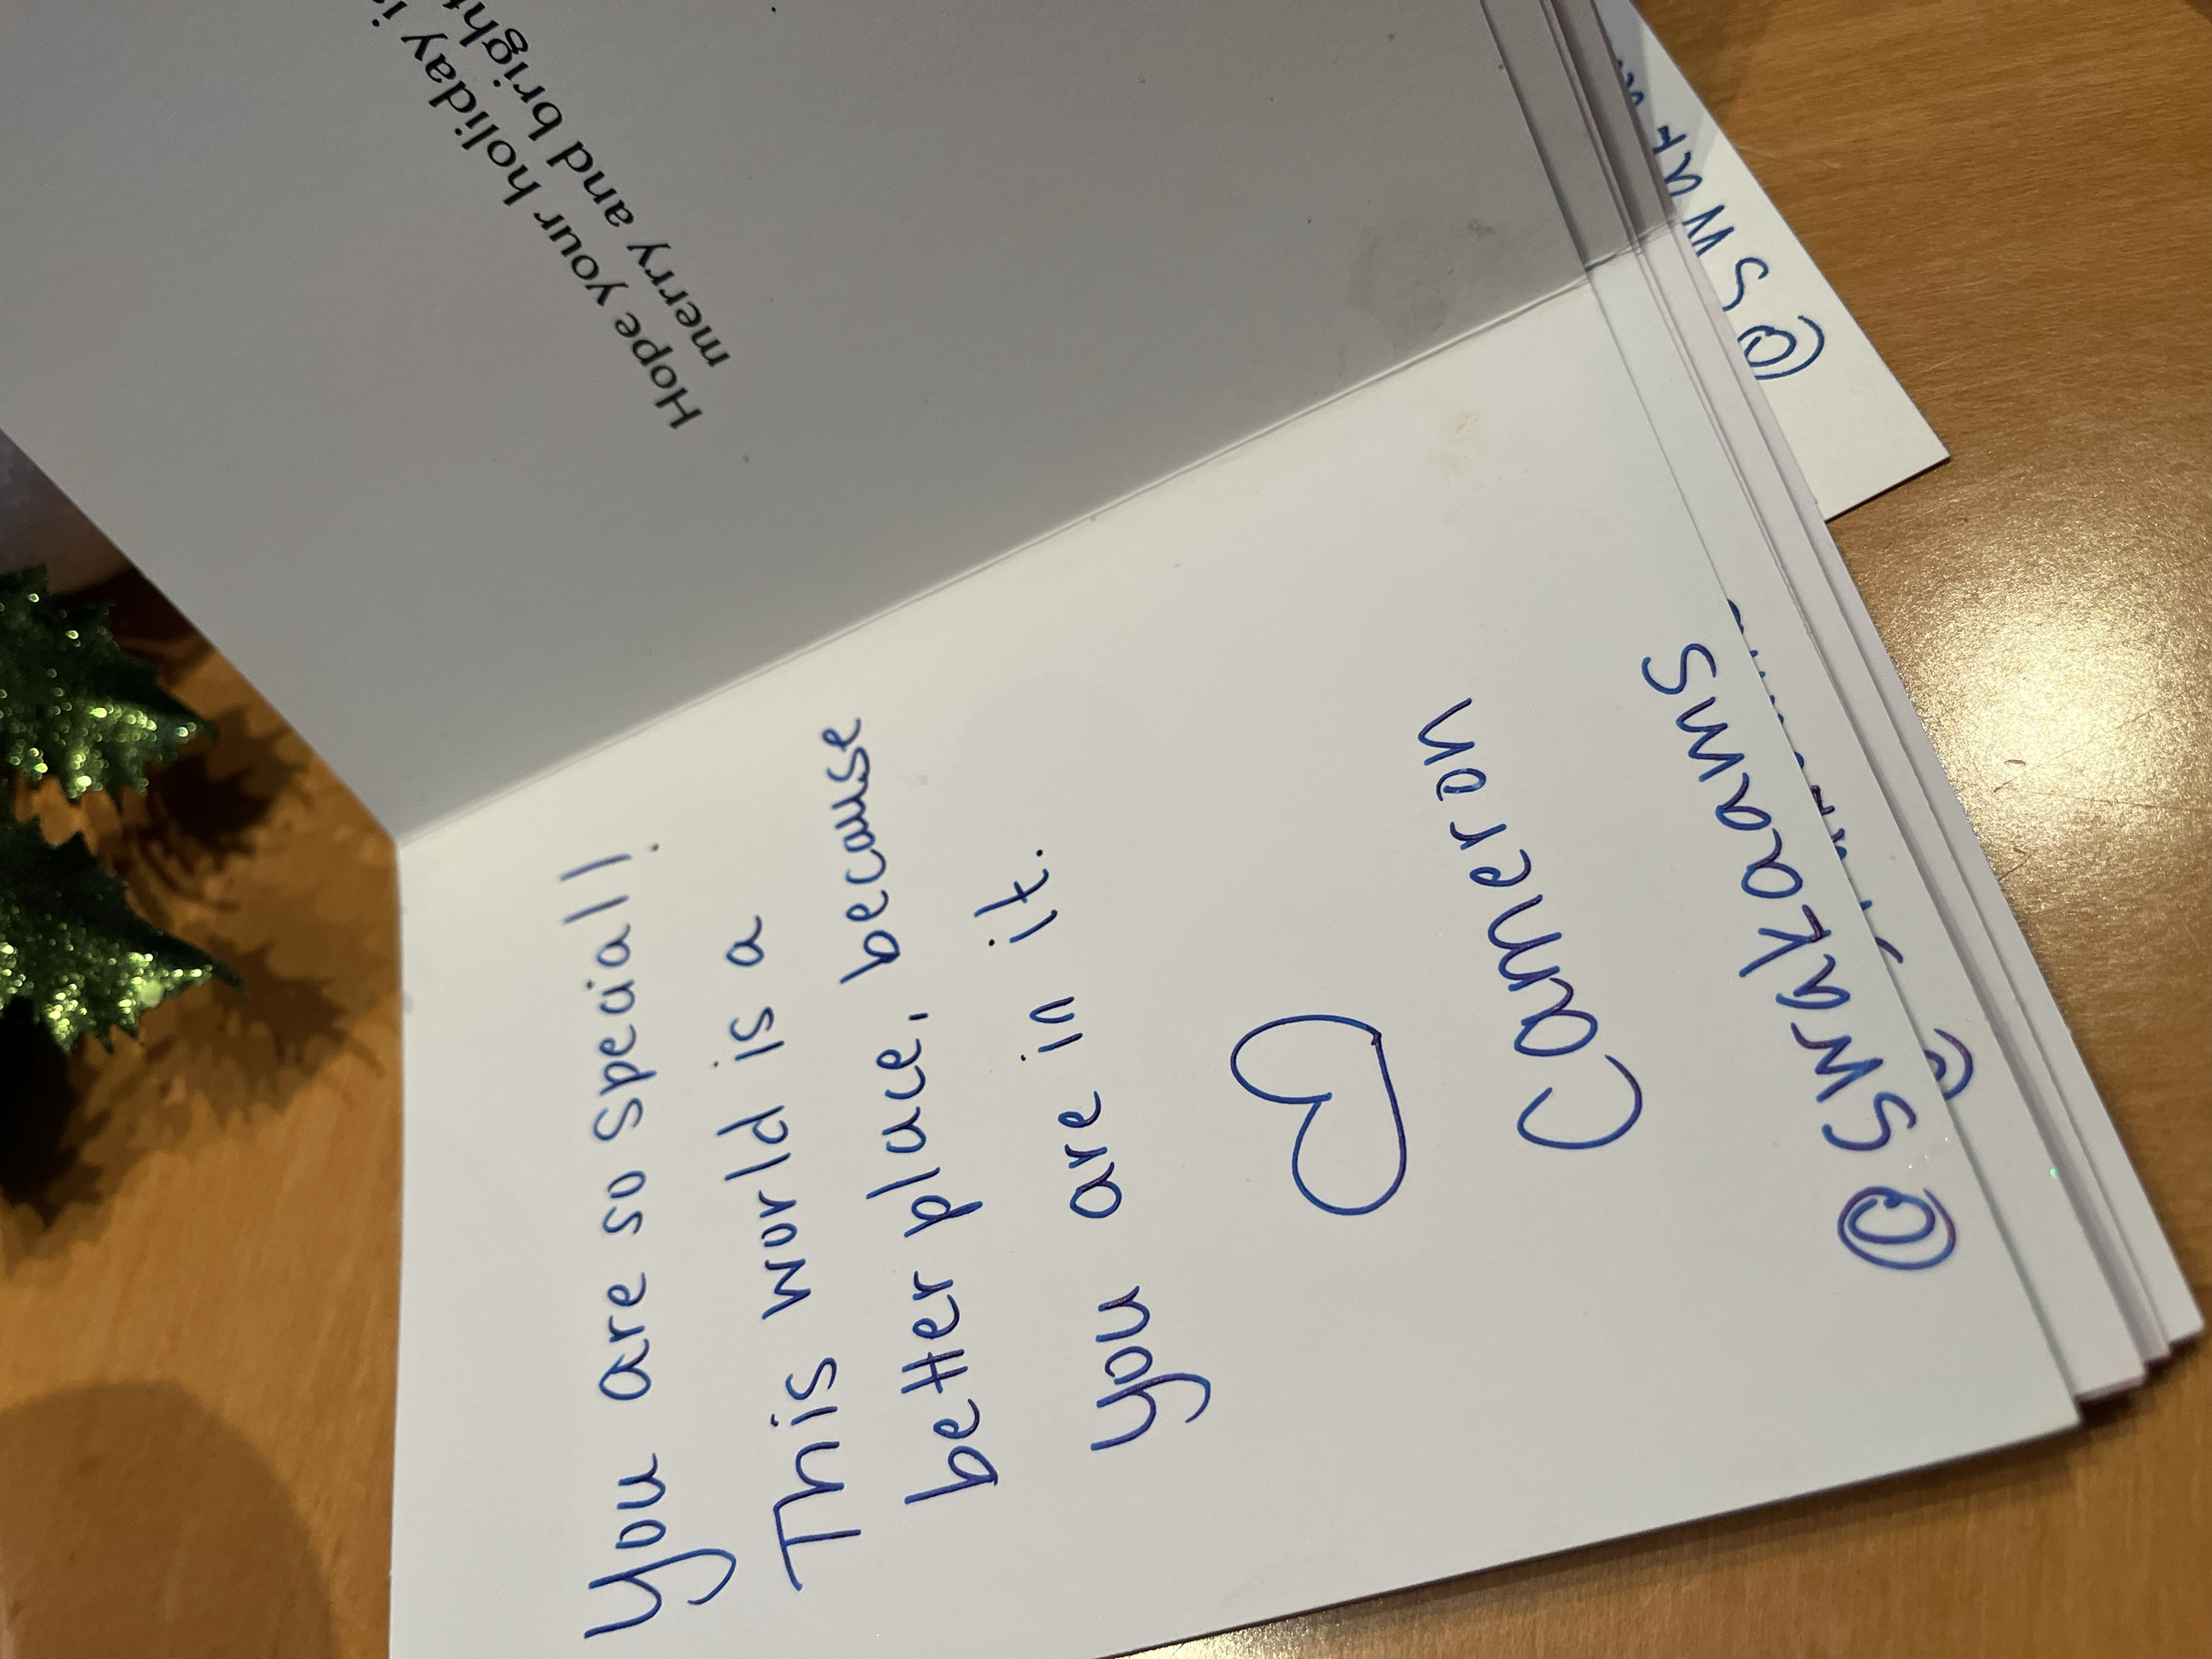 Hope your holiday is
merry and bright
You are so special!
This world is a
better place, because
you are in it.
Cameron
@swakoams
@swak